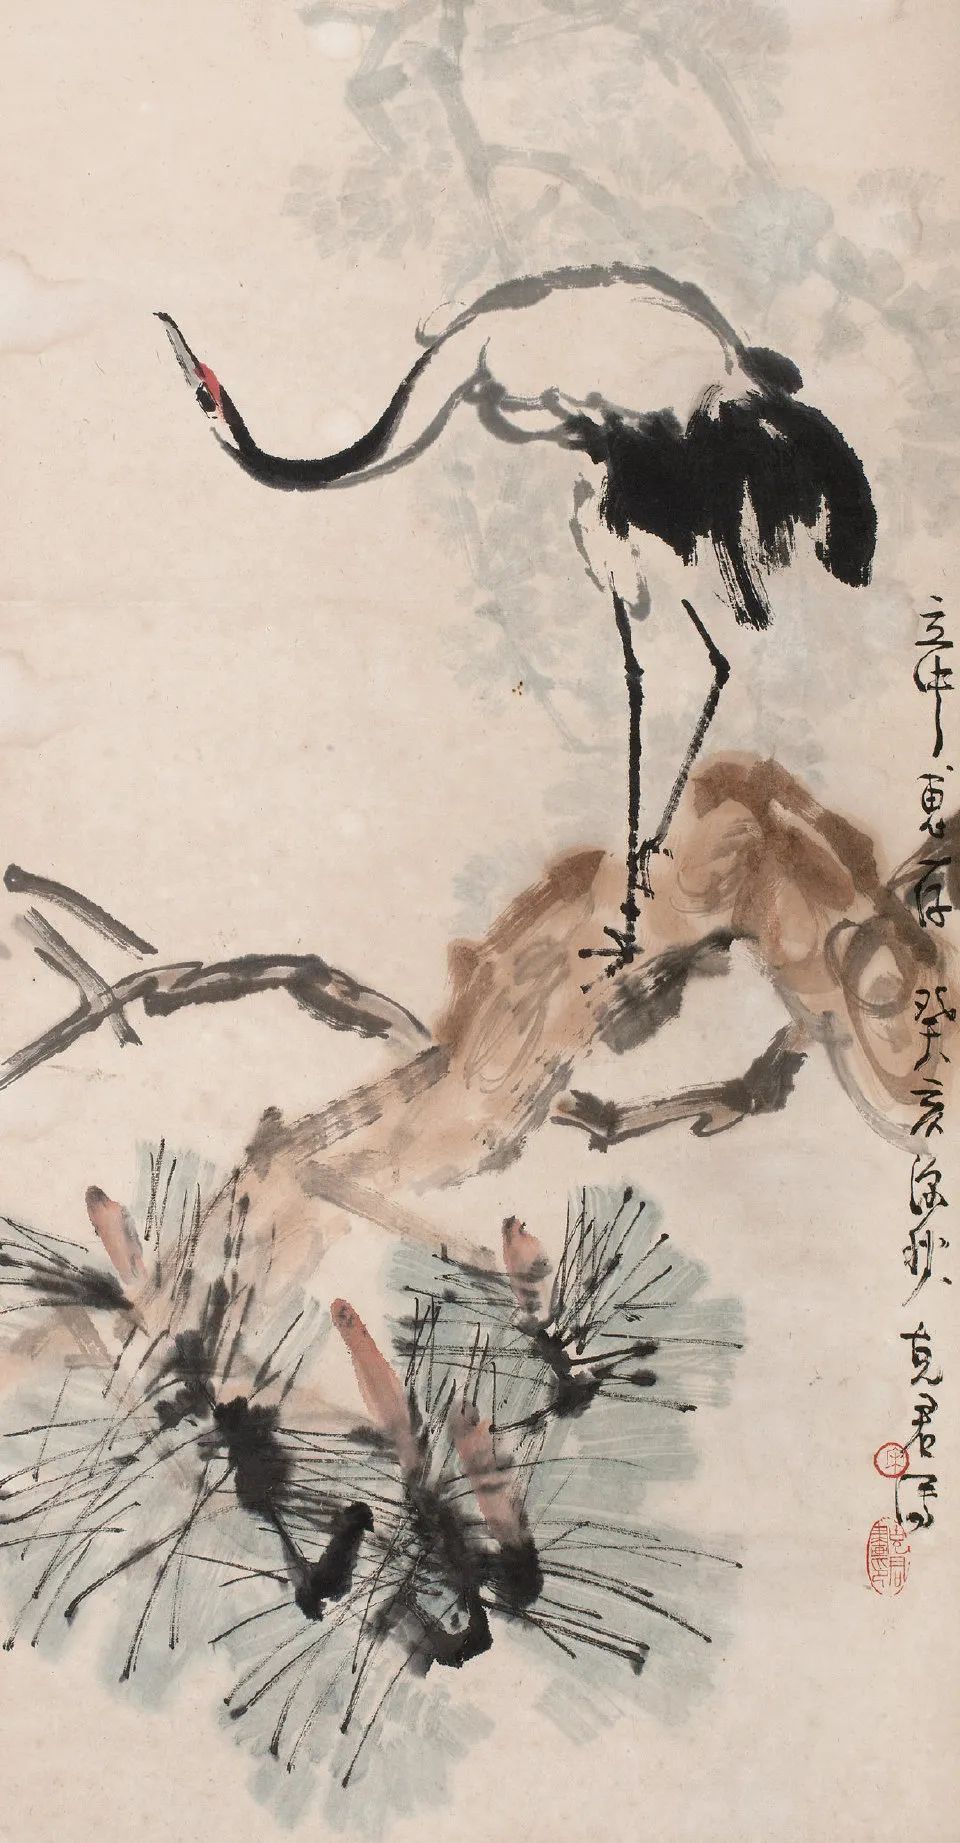 立中惠存 癸亥深秋 克君写